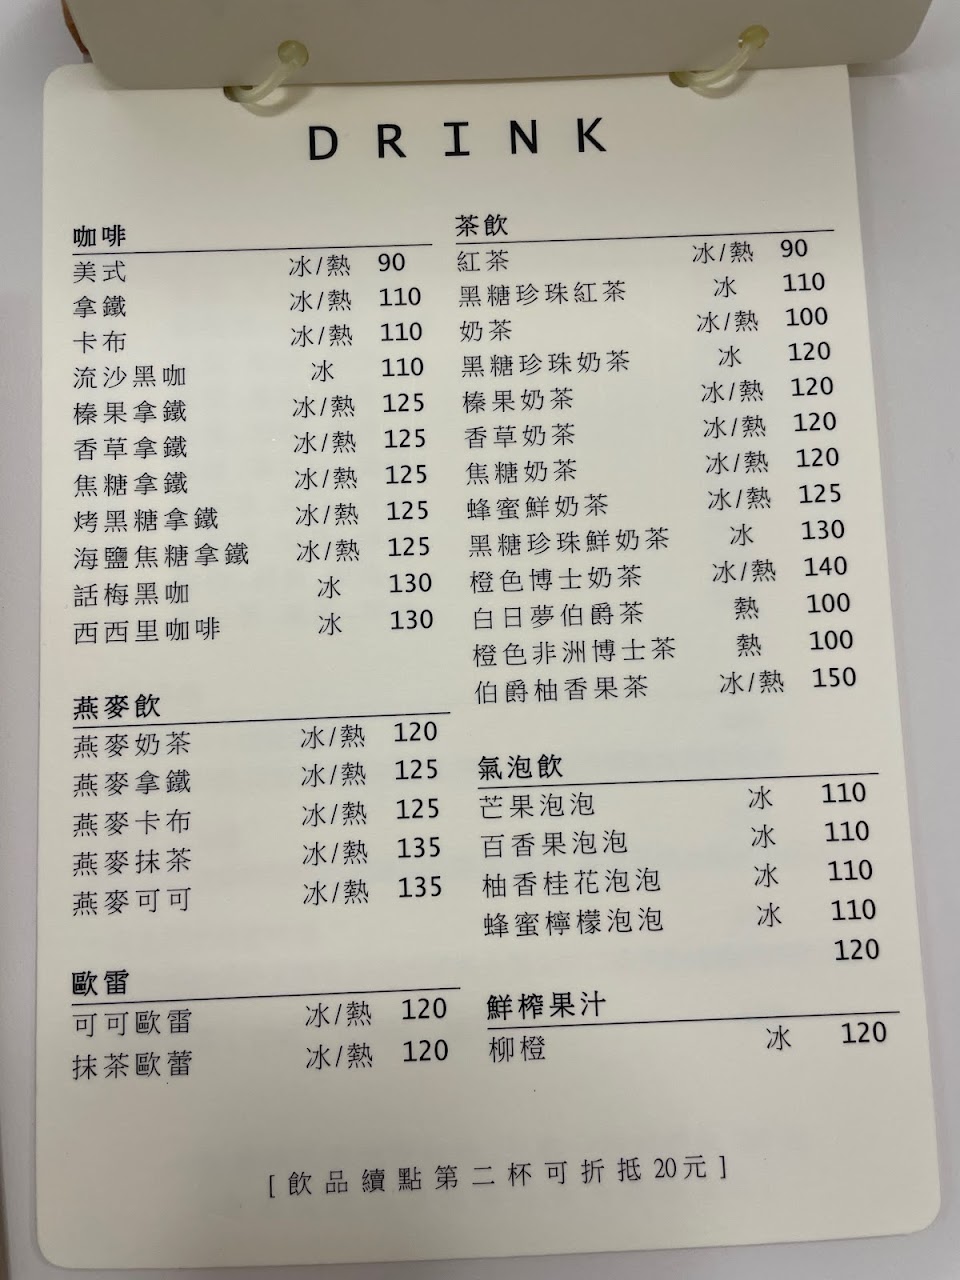 DRINK
咖啡
美式 冰/熱 90
拿鐵 冰/熱 110
卡布 冰/熱 110
流沙黑咖 冰 110
榛果拿鐵 冰/熱 125
香草拿鐵 冰/熱 125
焦糖拿鐵 冰/熱 125
烤黑糖拿鐵 冰/熱 125
海鹽焦糖拿鐵 冰/熱 125
話梅黑咖 冰 130
西西里咖啡 冰 130
燕麥飲
燕麥奶茶 冰/熱 120
燕麥拿鐵 冰/熱 125
燕麥卡布 冰/熱 125
燕麥抹茶 冰/熱 135
燕麥可可 冰/熱 135
歐雷
可可歐雷 冰/熱 120
抹茶歐蕾 冰/熱 120
茶飲
紅茶 冰/熱 90
黑糖珍珠紅茶 冰 110
奶茶 冰/熱 100
黑糖珍珠奶茶 冰 120
榛果奶茶 冰/熱 120
香草奶茶 冰/熱 120
焦糖奶茶 冰/熱 120
蜂蜜鮮奶茶 冰/熱 125
黑糖珍珠鮮奶茶 冰 130
橙色博士奶茶 冰/熱 140
白日夢伯爵茶 熱 100
橙色非洲博士茶 熱 100
伯爵柚香果茶 冰/熱 150
氣泡飲
芒果泡泡 冰 110
百香果泡泡 冰 110
柚香桂花泡泡 冰 110
蜂蜜檸檬泡泡 冰 110
120
鮮榨果汁
柳橙 冰 120
[飲品續點第二杯可折抵20元]